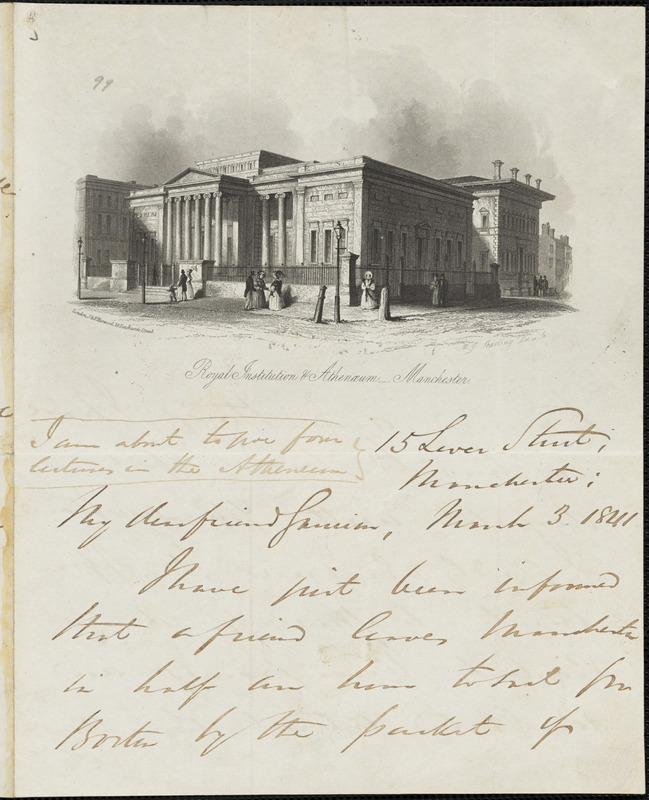 99
London, J. & F. Harwood, 26 Fenchurch Street
Royal Institution & Athenæum. Manchester
I am about to give four
lectures in the Atheneum
15 Lever Street;
Manchester;
My dear friend Garrison, March 3. 1841
I have just been informed
that a friend leaves Manchester
in half an hour to sail for
Boston by the packet of